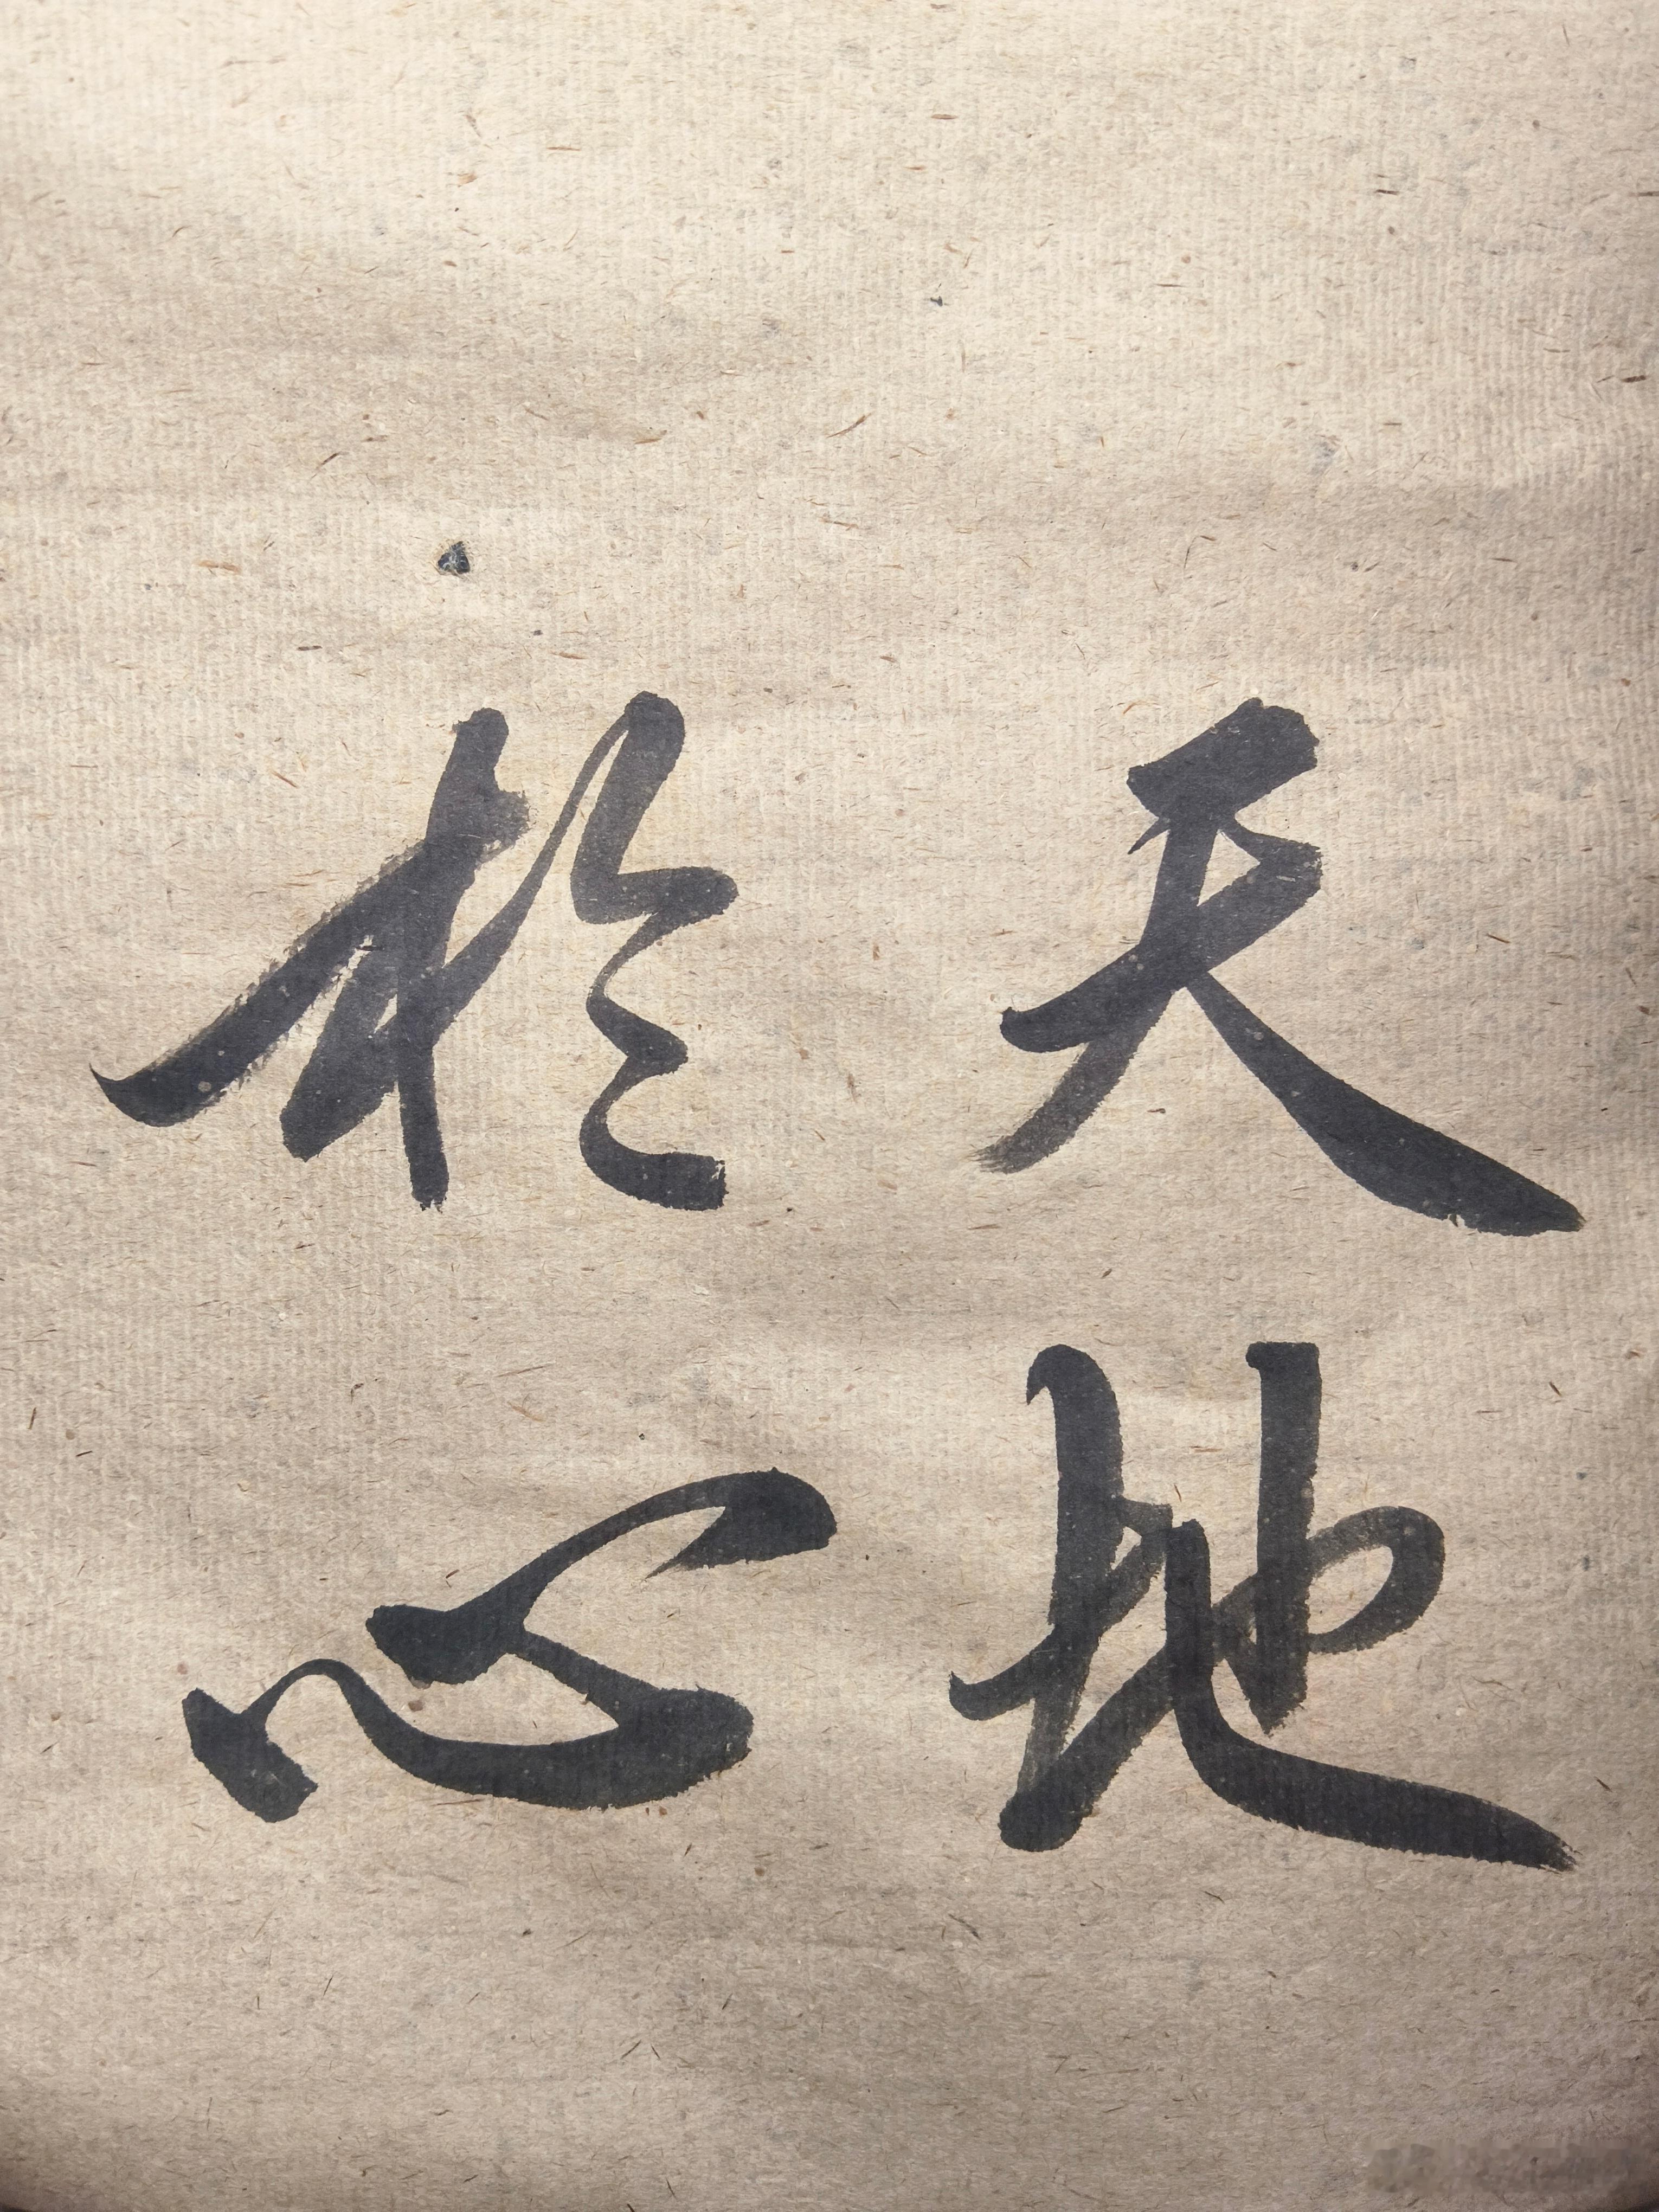 天地
於心